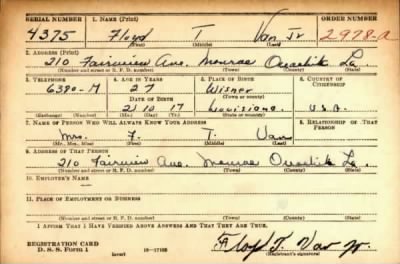 SERIAL NUMBER 1. NAME (Print) ORDER NUMBER
4375 Floyd T Van Jr 2978-A
(First) (Middle) (Last)
2. ADDRESS (Print)
210 Fairview Ave. Monroe Ouachita La.
(Number and street or R. F. D. number) (Town) (County) (State)
3. TELEPHONE 4. AGE IN YEARS 5. PLACE OF BIRTH 6. COUNTRY OF CITIZENSHIP
6380-M 27 Wisner
DATE OF BIRTH (Town or county)
21 10 17 Louisiana U.S.A.
(Exchange) (Number) (Mo.) (Day) (Yr.) (State or country)
7. NAME OF PERSON WHO WILL ALWAYS KNOW YOUR ADDRESS 8. RELATIONSHIP OF THAT PERSON
Mrs. F. T. Van
(Mr., Mrs., Miss) (First) (Middle) (Last)
9. ADDRESS OF THAT PERSON
210 Fairview Ave. Monroe Ouachita La.
(Number and street or R. F. D. number) (Town) (County) (State)
10. EMPLOYER'S NAME
11. PLACE OF EMPLOYMENT OR BUSINESS
(Number and street or R. F. D. number) (Town) (County) (State)
I AFFIRM THAT I HAVE VERIFIED ABOVE ANSWERS AND THAT THEY ARE TRUE.
REGISTRATION CARD
D. S. S. Form 1 (over) 16-17105 Floyd T. Van Jr.
(Registrant's signature)